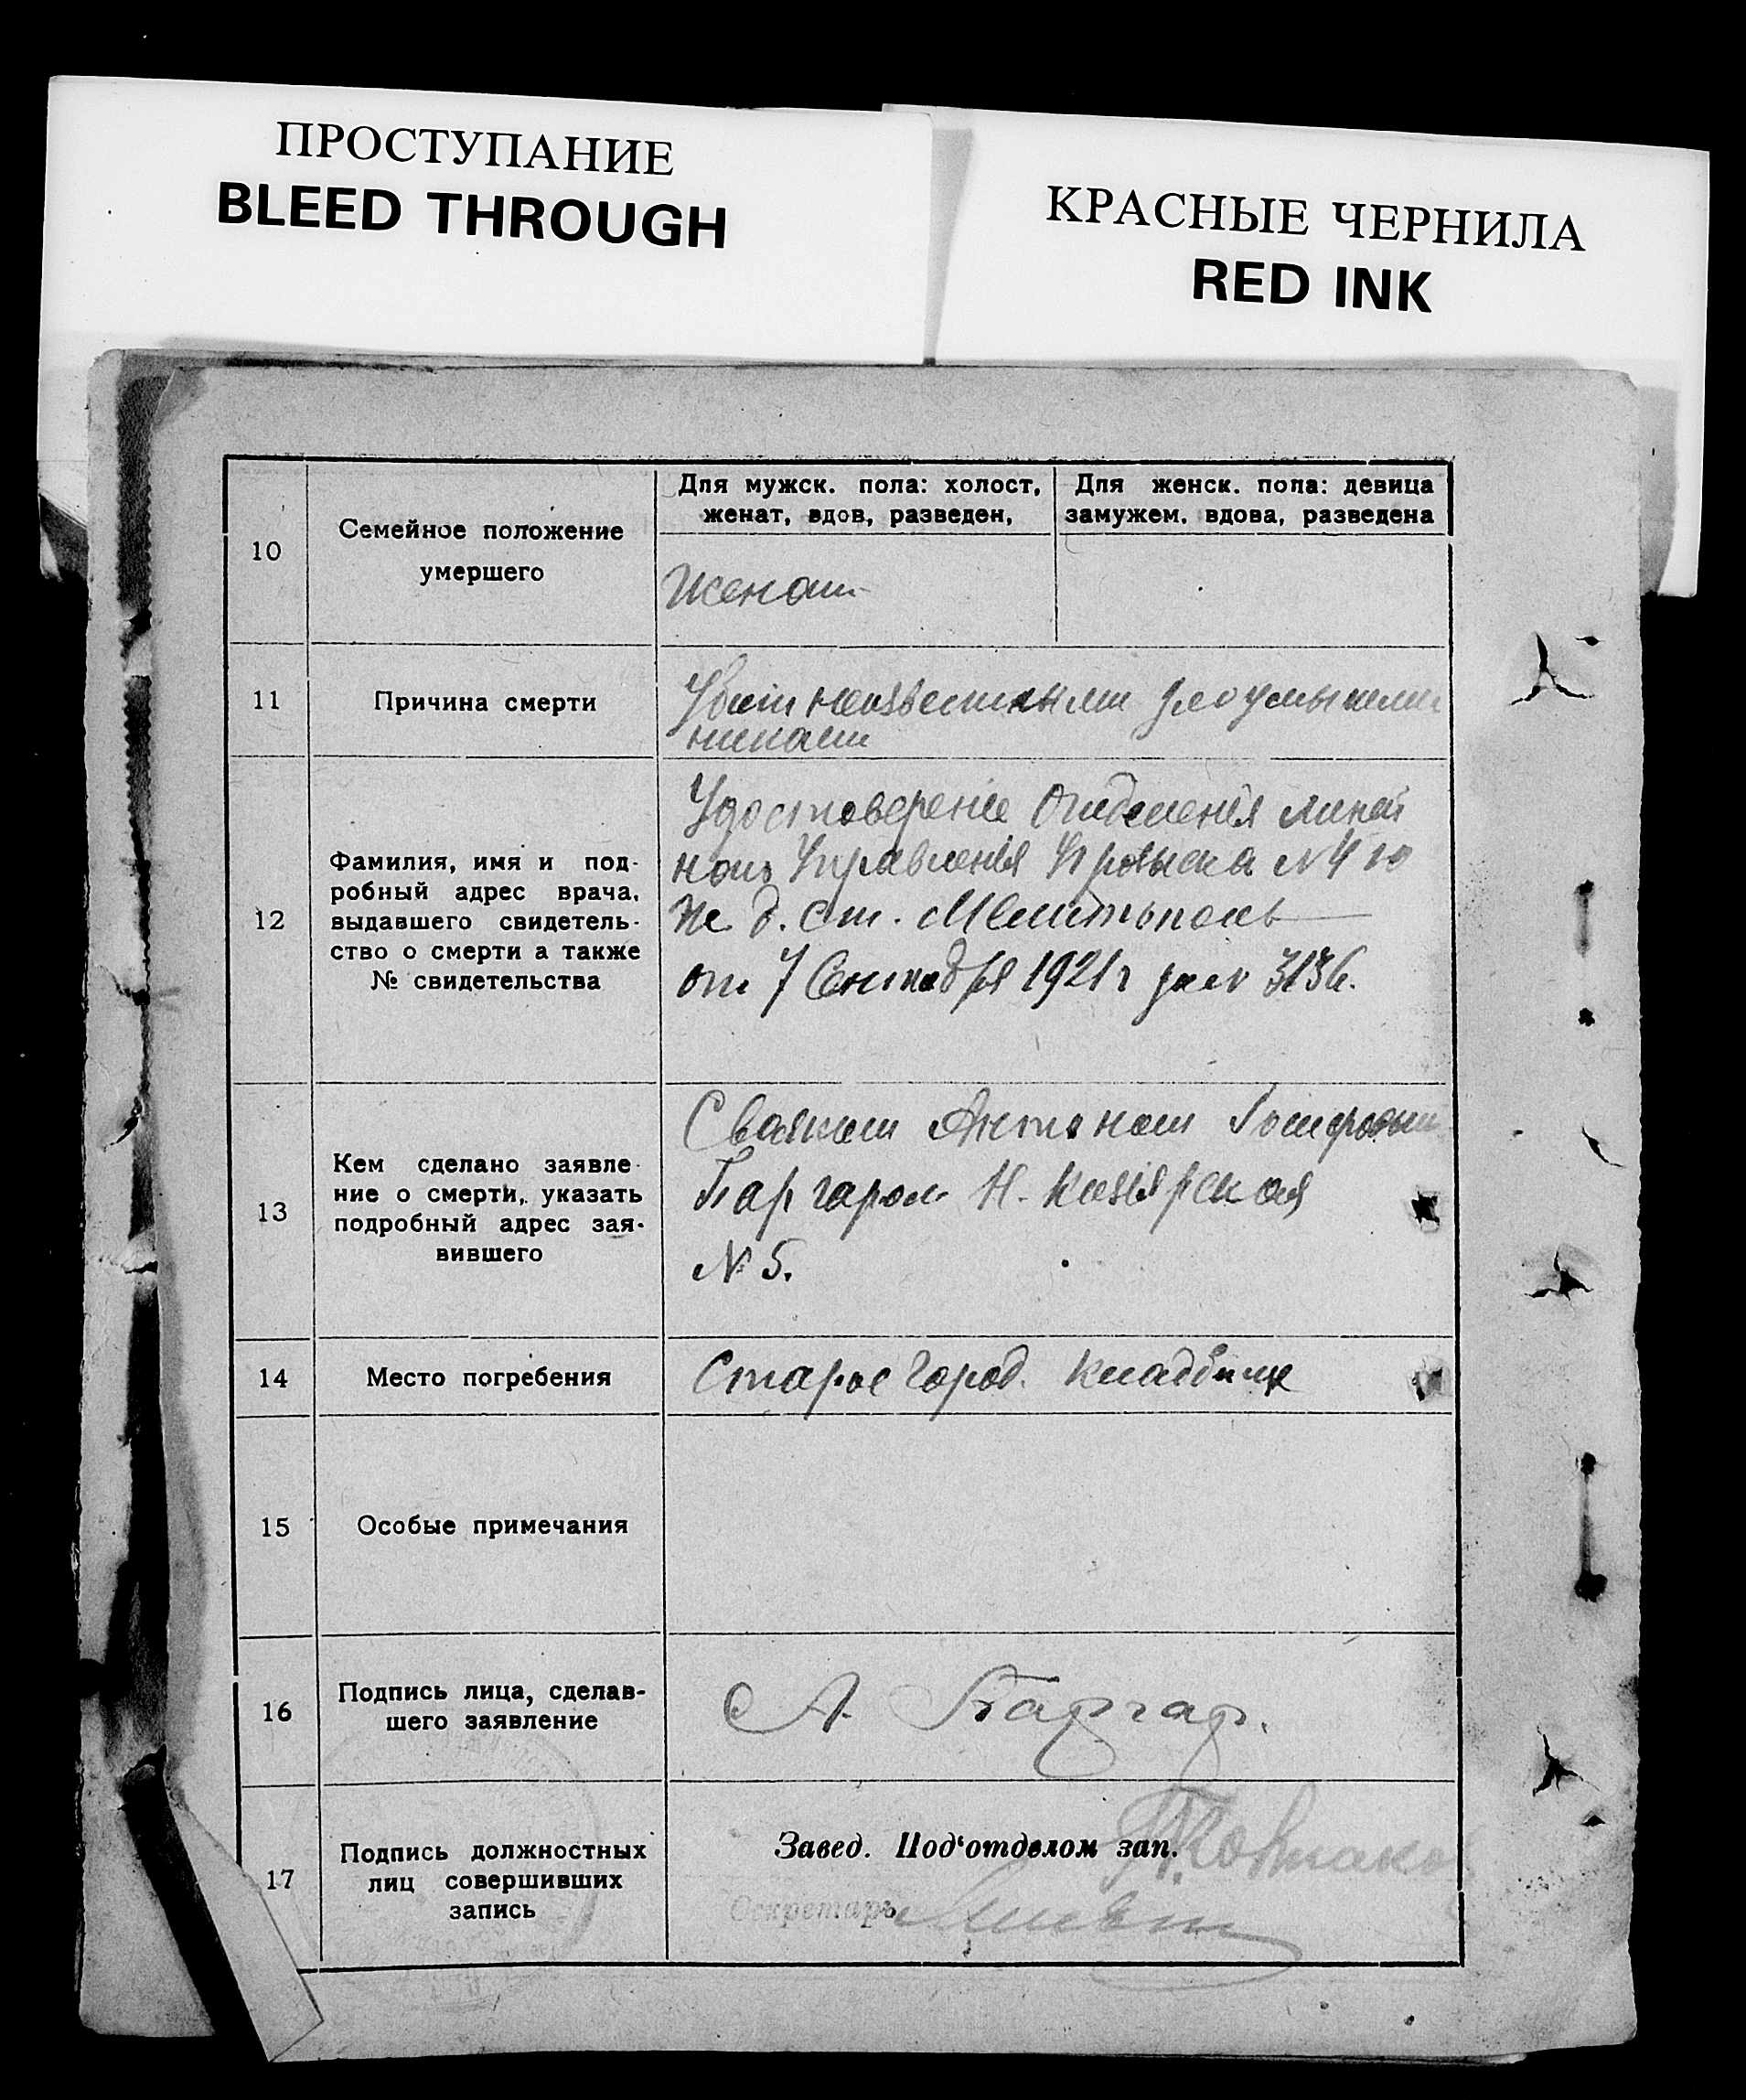 ПРОСТУПАНИЕ
BLEED THROUGH
КРАСНЫЕ ЧЕРНИЛА
RED INK
10
Семейное положение
умершего
Для мужск. пола: холост,
женат, вдов, разведен,
Для женск. пола: девица
замужем, вдова, разведена
Женат
11
Причина смерти
Убит неизвестными злоумышлен
никами
12
Фамилия, имя и под-
робный адрес врача,
выдавшего свидетель-
ство о смерти а также
№ свидетельства
Удостоверение Отделенія Линей
наго Управленія Розыска №4 по
ж д. ст. Мелитополь
от 7 Сентября 1921 г за № 3136.
13
Кем сделано заявле-
ние о смерти, указать
подробный адрес зая-
вившего
Антоном
Баргаром Н.
№ 5.
14
Место погребения
Старое Город. Кладбище
15
Особые примечания
16
Подпись лица, сделав-
шего заявление
А. Баргар.
17
Подпись должностных
лиц совершивших
запись
Завед. Под‘отделом зап.
Секретарь